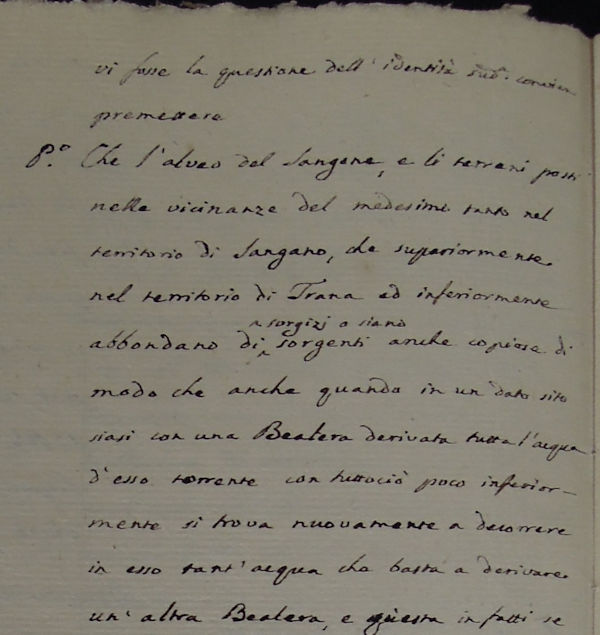 vi fosse la questione dell' identità sud.ᵃ convien
premettere
P.º Che l'alveo del Sangone, e li terreni posti
nelle vicinanze del medesimo tanto nel
territorio di Sangano, che superiormente
nel territorio di Trana ed inferiormente
sorgizj o siano
abbondano di sorgenti anche copiose di
modo che anche quando in un dato sito
siasi con una Bealera derivata tutta l'acqua
d'esso torrente con tuttociò poco inferior-
mente si trova nuovamente a decorrere
in esso tant'acqua che basta a derivare
un'altra Bealera, e questa in fatti se